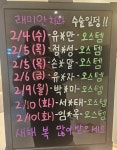 래미안치과 수술일정!!
2/4(수)-유*만-오스템
2/5(목)-정*성-오스템
2/5(목)-손*말-오스템
2/6(금)-유*자-오스템
2/9(월)-박*미-오스템
2/10(화)-서*태-오스템
2/10(화)-임*옥-오스템
새해 복 많이 받으세요